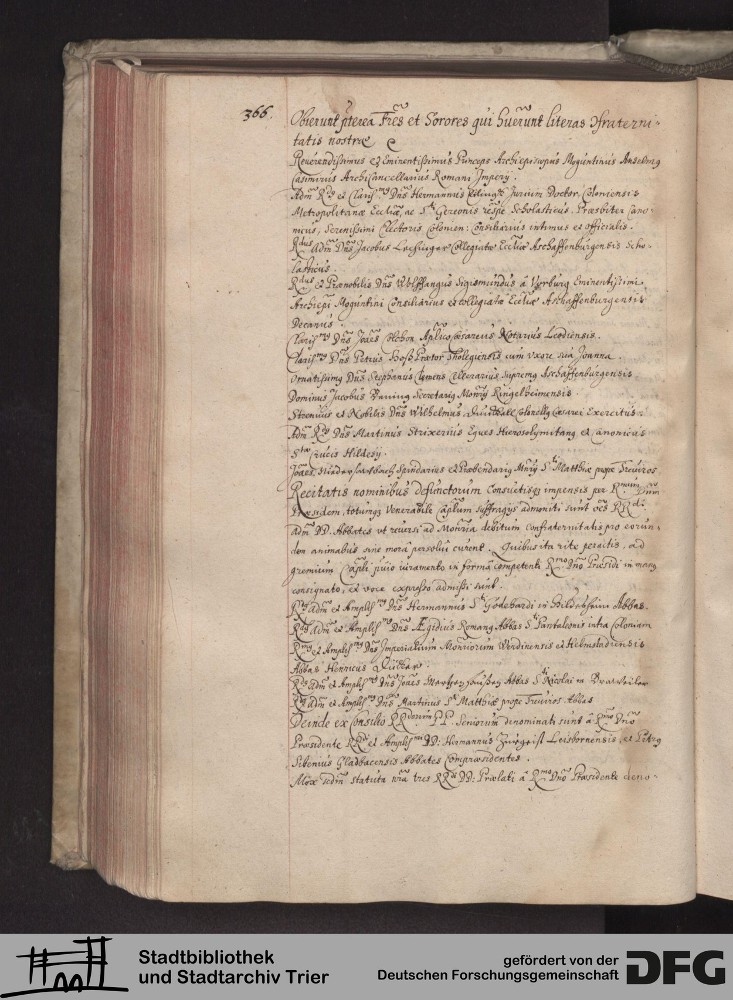 366.
Obierunt p̄terea Frēs et Sorores qui huerunt literas Ɔfraterni-
tatis nostræ
Reverendissimus et Eminentissimus Princeps Archiepiscopus Moguntinus Anselmg
Casimirus Archicancellarius Romani Imperij.
Adm̄ Rdg et Clarissmg Dn̄s Hermannus Jurium Doctor, Coloniensis
Metropolitanæ Ecctiæ, ac Sti Gereonis respe Scholasticus, Præsbiter Cano-
nicus, Serenissimi Electoris Colonien: Consiliarius intimus et officialis.
Rdus Adm̄ Dn̄s Jacobus Collegiatæ Ecctiæ Aschaffenburgensis Scho-
lasticus.
Rdus et Prænobilis Dn̄s Wolffgangus Sigismundus â Vorburg Eminentissimi
Archiepi Moguntini Consiliarius et collegiatæ Ecctiæ Aschaffenburgensis
Decanus.
Clarissmg Dn̄s Joāēs Aplico Cæsareus Notarius Leodiensis.
Clarissmg Dn̄s Petrus Prætor Tholegiensis cum uxore sua Joanna.
Ornatissimg Dn̄s Stephanus Clemens Cellerarius Supremg Aschaffenburgensis
Dominus Jacobus Secretarig Monrij Ringelheimensis.
Strenuus et Nobilis Dn̄s Wilhelmus Colonellg Cæsarei Exercitus
Adm̄ Rdg Dn̄s Martinus Strixerius Eques Hierosolymitang et Canonicus
Stæ Crucis Hildesij.
Joāēs Spindarius et Præbendarig Mnrij Sti Matthiæ prope Treviros
Recitatis nominibus defunctorum consuetisqz impensis per Rmum Dnum
Præsidem, totumqz Venerabile Caplum suffragijs admoniti sunt oēs RRdi
Adm̄ DD. Abbates ut reversi ad Monria debitum Confraternitatis pro eorun-
dem animabus sine mora persolvi curent. Quibus ita rite peractis, ad
gremium Capli prævio iuramento in forma competenti Rmo Dn̄o Præsidi in manus
consignato, et voce expresso admissi sunt.
Rdg adm̄ et Amplissmg Dn̄s Hermannus Sti Godehardi in Hildesheim Abbas.
Rdg Adm̄ et Amplissmg Dn̄s Ægidius Romang Abbas Sti Pantaleonis intra Coloniam
Rmg et Amplissmg Dn̄s Imperialium Monriorum Werdinensis et Helmstadiensis
Abbas Henricus Dücker.
Rdg adm̄ et Amplissmg Dn̄s Joāēs Abbas Sti Nicolai in Brauweiler
Rdg adm̄ et Amplissmg Dn̄s Martinus Sti Matthiæ prope Treviros Abbas
Deinde ex Consilio RRdorum PP. Seniorum denominati sunt â Rmo Dn̄o
Præsidente RRdi et Amplissmi DD: Hermannus Leisbornensis, et Petrg
Sibenius Gladbacensis Abbates Compræsidentes.
Mox secdm̄ statuta nrā tres RRdi DD: Prælati â Rmo Dn̄o Præsidente deno-
Stadtbibliothek
und Stadtarchiv Trier
gefördert von der
Deutschen Forschungsgemeinschaft
DFG